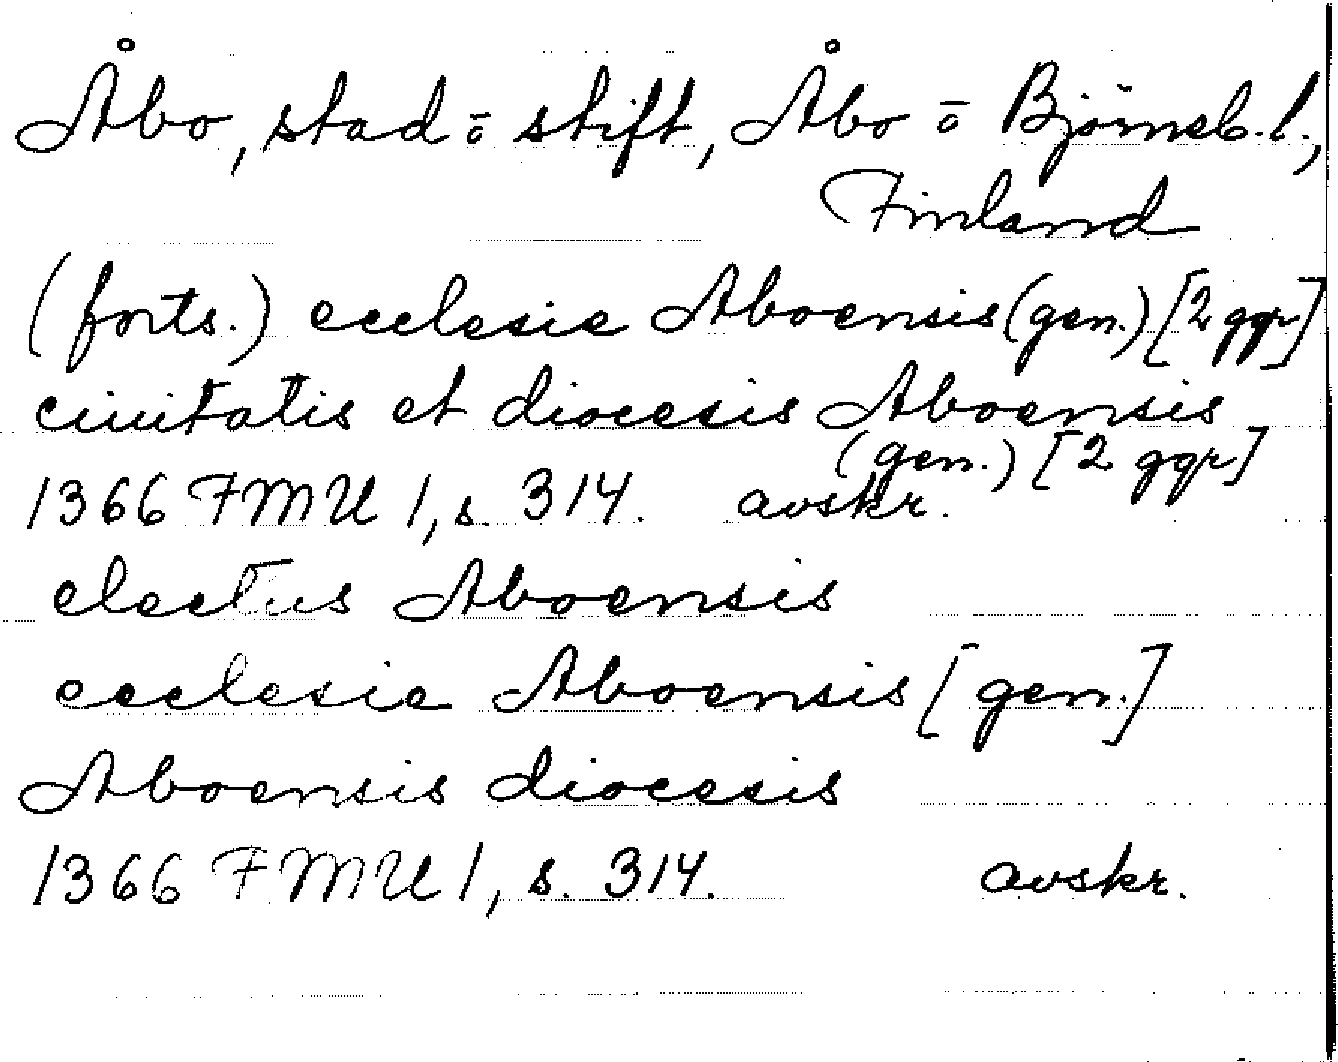 Åbo, stad ō stift, Åbo ō Björneb. l.,
Finland
(forts.) ecclesie Aboensis (gen.) [2 ggr]
ciuitatis et diocesis Aboensis
(gen.) [2 ggr]
1366 FMU 1, s. 314. avskr.
electus Aboensis
ecclesie Aboensis [gen.]
Aboensis diocesis
1366 FMU 1, s. 314. avskr.